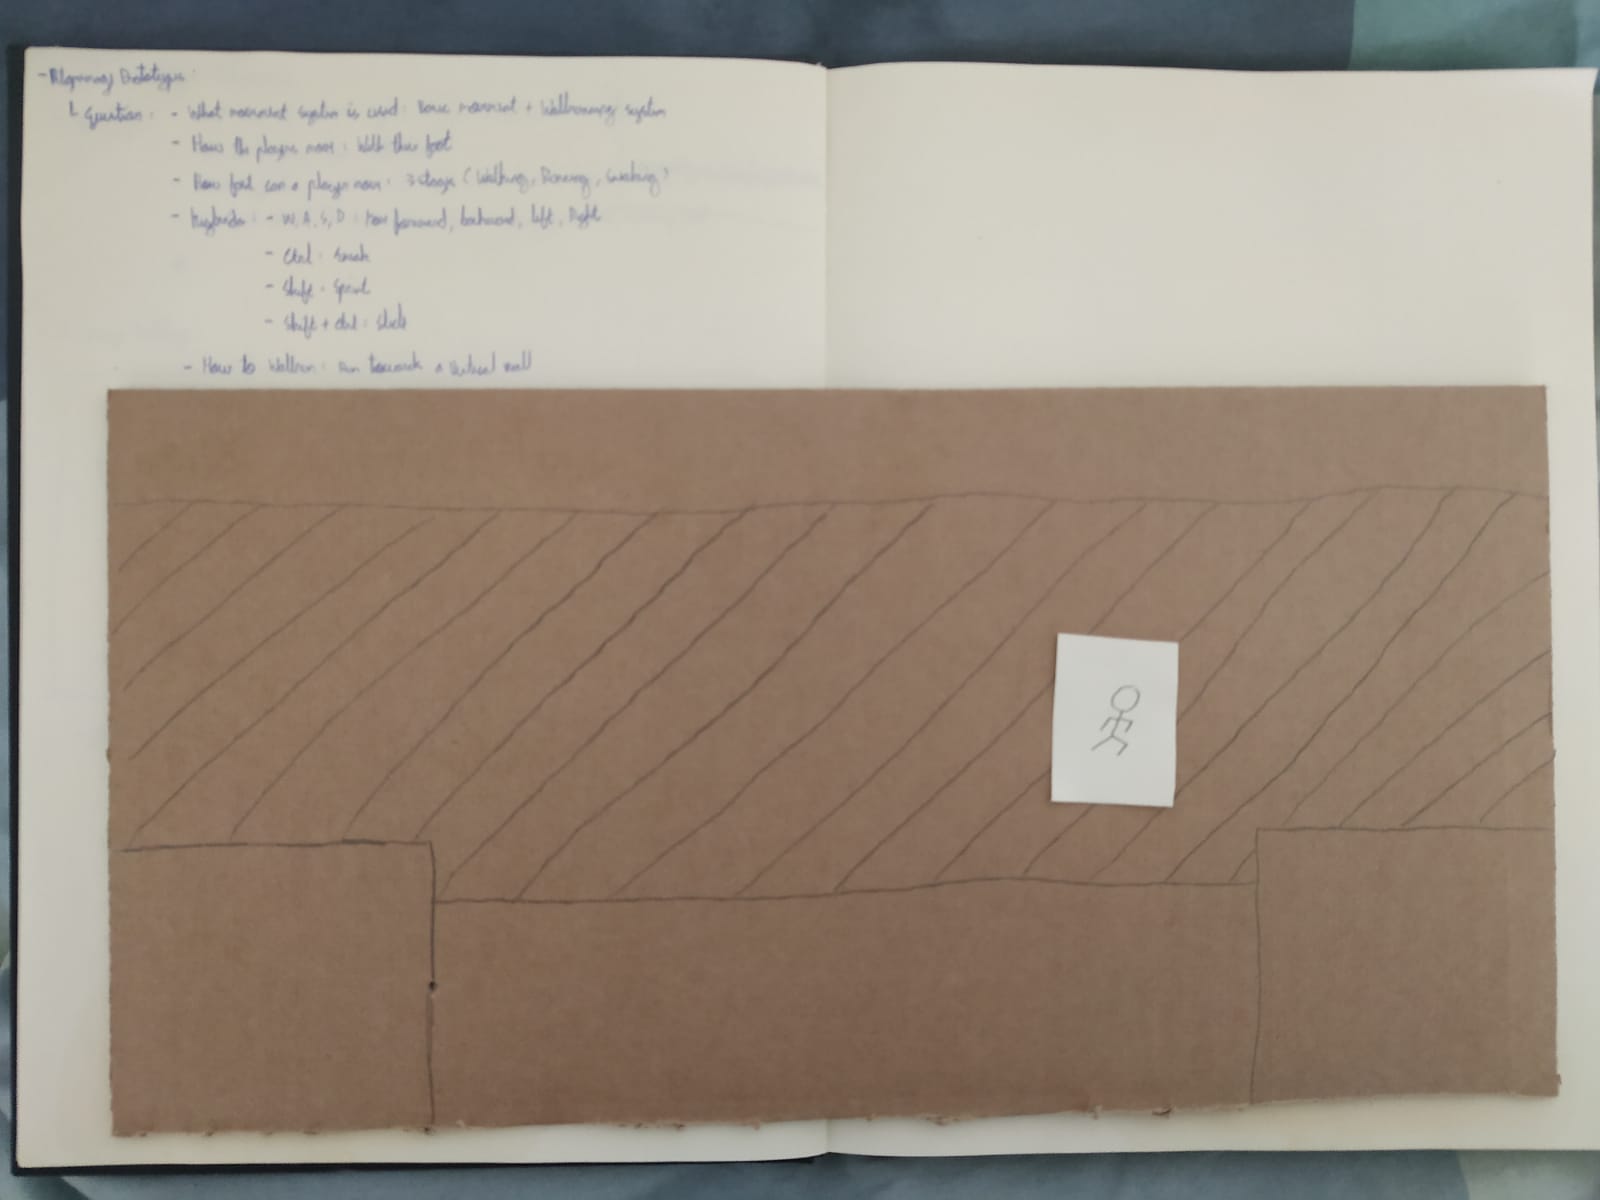 - Playing Prototype:
└ Question: - What movement system is used: Basic movement + Wallrunning system
- How the player move: With their feet
- How fast can a player move: 3 stage (Walking, Running, Sneaking)
- Keybinds: - W, A, S, D: Move forward, backward, left, right
- Ctrl: Sneak
- Shift: Sprint
- Shift + ctrl: Slide
- How to Wallrun: Run towards a vertical wall